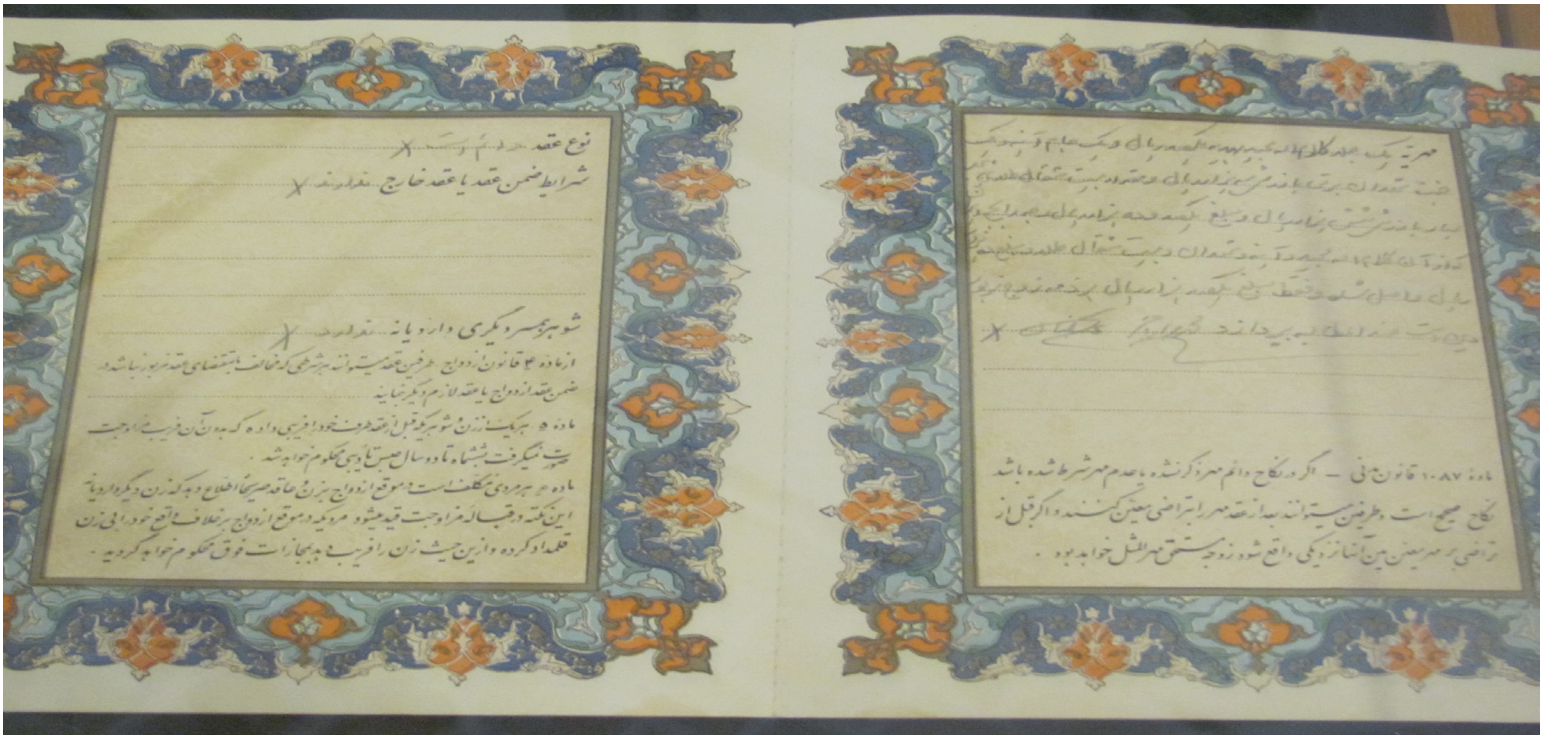 مهریه یک جلد کلام الله مجید بهدیه یکصد ریال و یک جام آینه و یک
جفت شمعدان برنز بارزش سی هزار ریال و مقدار بیست مثقال طلای
بارزش شش هزار ریال و مبلغ یکصد و ده هزار ریال وجه
که از آن کلام الله مجید و آینه و شمعدان و بیست مثقال طلا
واصل شده و فقط مبلغ یکصد هزار ریال بر ذمه زوج
دین است عندالمطالبه بپردازد
مادهٔ ۱۰۸۷ قانون مدنی - اگر در نکاح دائم مهر ذکر نشده یا عدم مهر شرط شده باشد
نکاح صحیح است و طرفین میتوانند بعد از عقد مهر را بتراضی معین کنند و اگر قبل از
تراضی بر مهر معین بین آنها نزدیکی واقع شود زوجه مستحق مهرالمثل خواهد بود .
نوع عقد دائم است
شرایط ضمن عقد یا عقد خارج ندارند
شوهر همسر دیگری دارد یا نه ندارد
از ماده ۴ قانون ازدواج طرفین عقد میتوانند هر شرطی که مخالف با مقتضای عقد مزبور نباشد در
ضمن عقد ازدواج یا عقد لازم دیگر نمایند
ماده ۵ هر یک از زن و شوهر که قبل از عقد طرف خود را فریبی داده که بدون آن فریب مزاوجت
صورت نمیگرفت بششماه تا دو سال حبس تأدیبی محکوم خواهد شد .
ماده ۶ هر مردی مکلف است در موقع ازدواج بزن و عاقد صریحاً اطلاع دهد که زن دیگر دارد یا نه
این نکته در قباله مزاوجت قید میشود مردیکه در موقع ازدواج بر خلاف واقع خود را بی زن
قلمداد کرده و از این حیث زن را فریب دهد بمجازات فوق محکوم خواهد گردید .